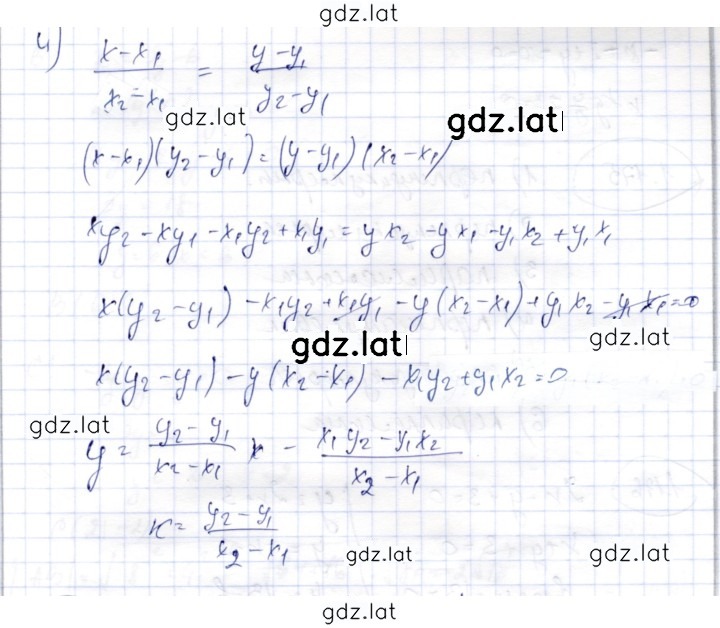 gdz.lat
4) (x-x₁)/(x₂-x₁) = (y-y₁)/(y₂-y₁)
gdz.lat gdz.lat
(x-x₁)(y₂-y₁)=(y-y₁)(x₂-x₁)
xy₂-xy₁-x₁y₂+x₁y₁=yx₂-yx₁-y₁x₂+y₁x₁
x(y₂-y₁)-x₁y₂+x₁y₁-y(x₂-x₁)+y₁x₂-y₁x₁=0
gdz.lat gdz.lat
x(y₂-y₁)-y(x₂-x₁)-x₁y₂+y₁x₂=0
gdz.lat gdz.lat
y= (y₂-y₁)/(x₂-x₁) x - (x₁y₂-y₁x₂)/(x₂-x₁)
к= (y₂-y₁)/(x₂-x₁)
gdz.lat gdz.lat
gdz.lat